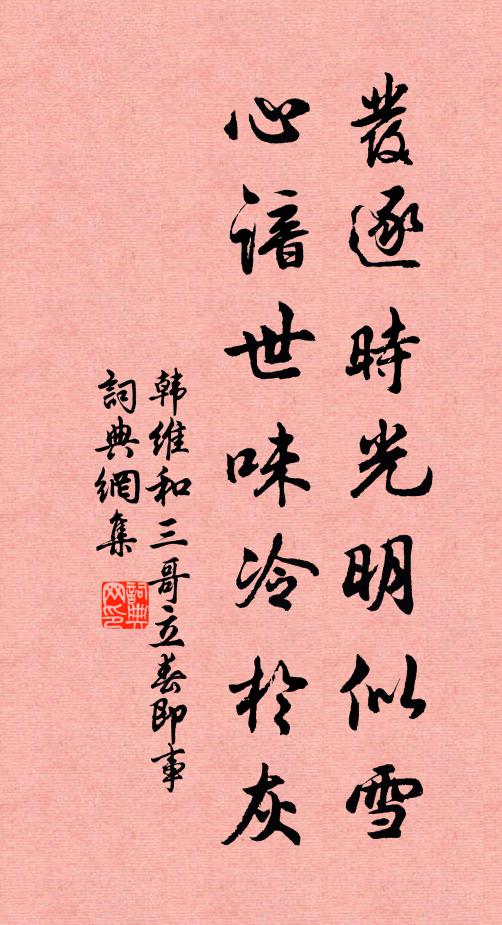 發逐時光明似雪
心諳世味冷於灰
韩維和三哥立春即事
詞典網集
詞典网印